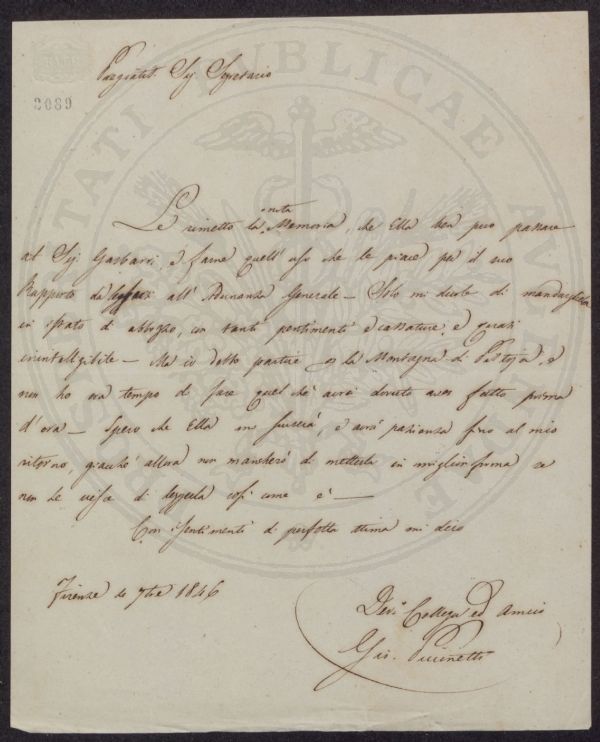 2089
Pregiatis. Sig Segretario
nota
Le rimetto la Memoria, che Ella ben può passare
al Sig Gasbarri, e farne quell' uso che le piace per il suo
Rapporto da leggersi all' Adunanza Generale — Solo mi duole di mandargliela
in istato di abbozzo, con tanti pentimenti e cassature, e quasi
inintelligibile — Ma io debbo partire per la Montagna di Pistoja, e
non ho ora tempo di fare quel che avrei dovuto aver fatto prima
d'ora — Spero che Ella mi scuserà, e avrà pazienza fino al mio
ritorno, giacchè allora non mancherò di metterla in miglior forma se
non le riesce di leggerla così come è —
Con sentimenti di perfetta stima mi dico
Firenze 7bre 1846
Dev. Collega ed Amico
Puccinotti
PUBLICAE